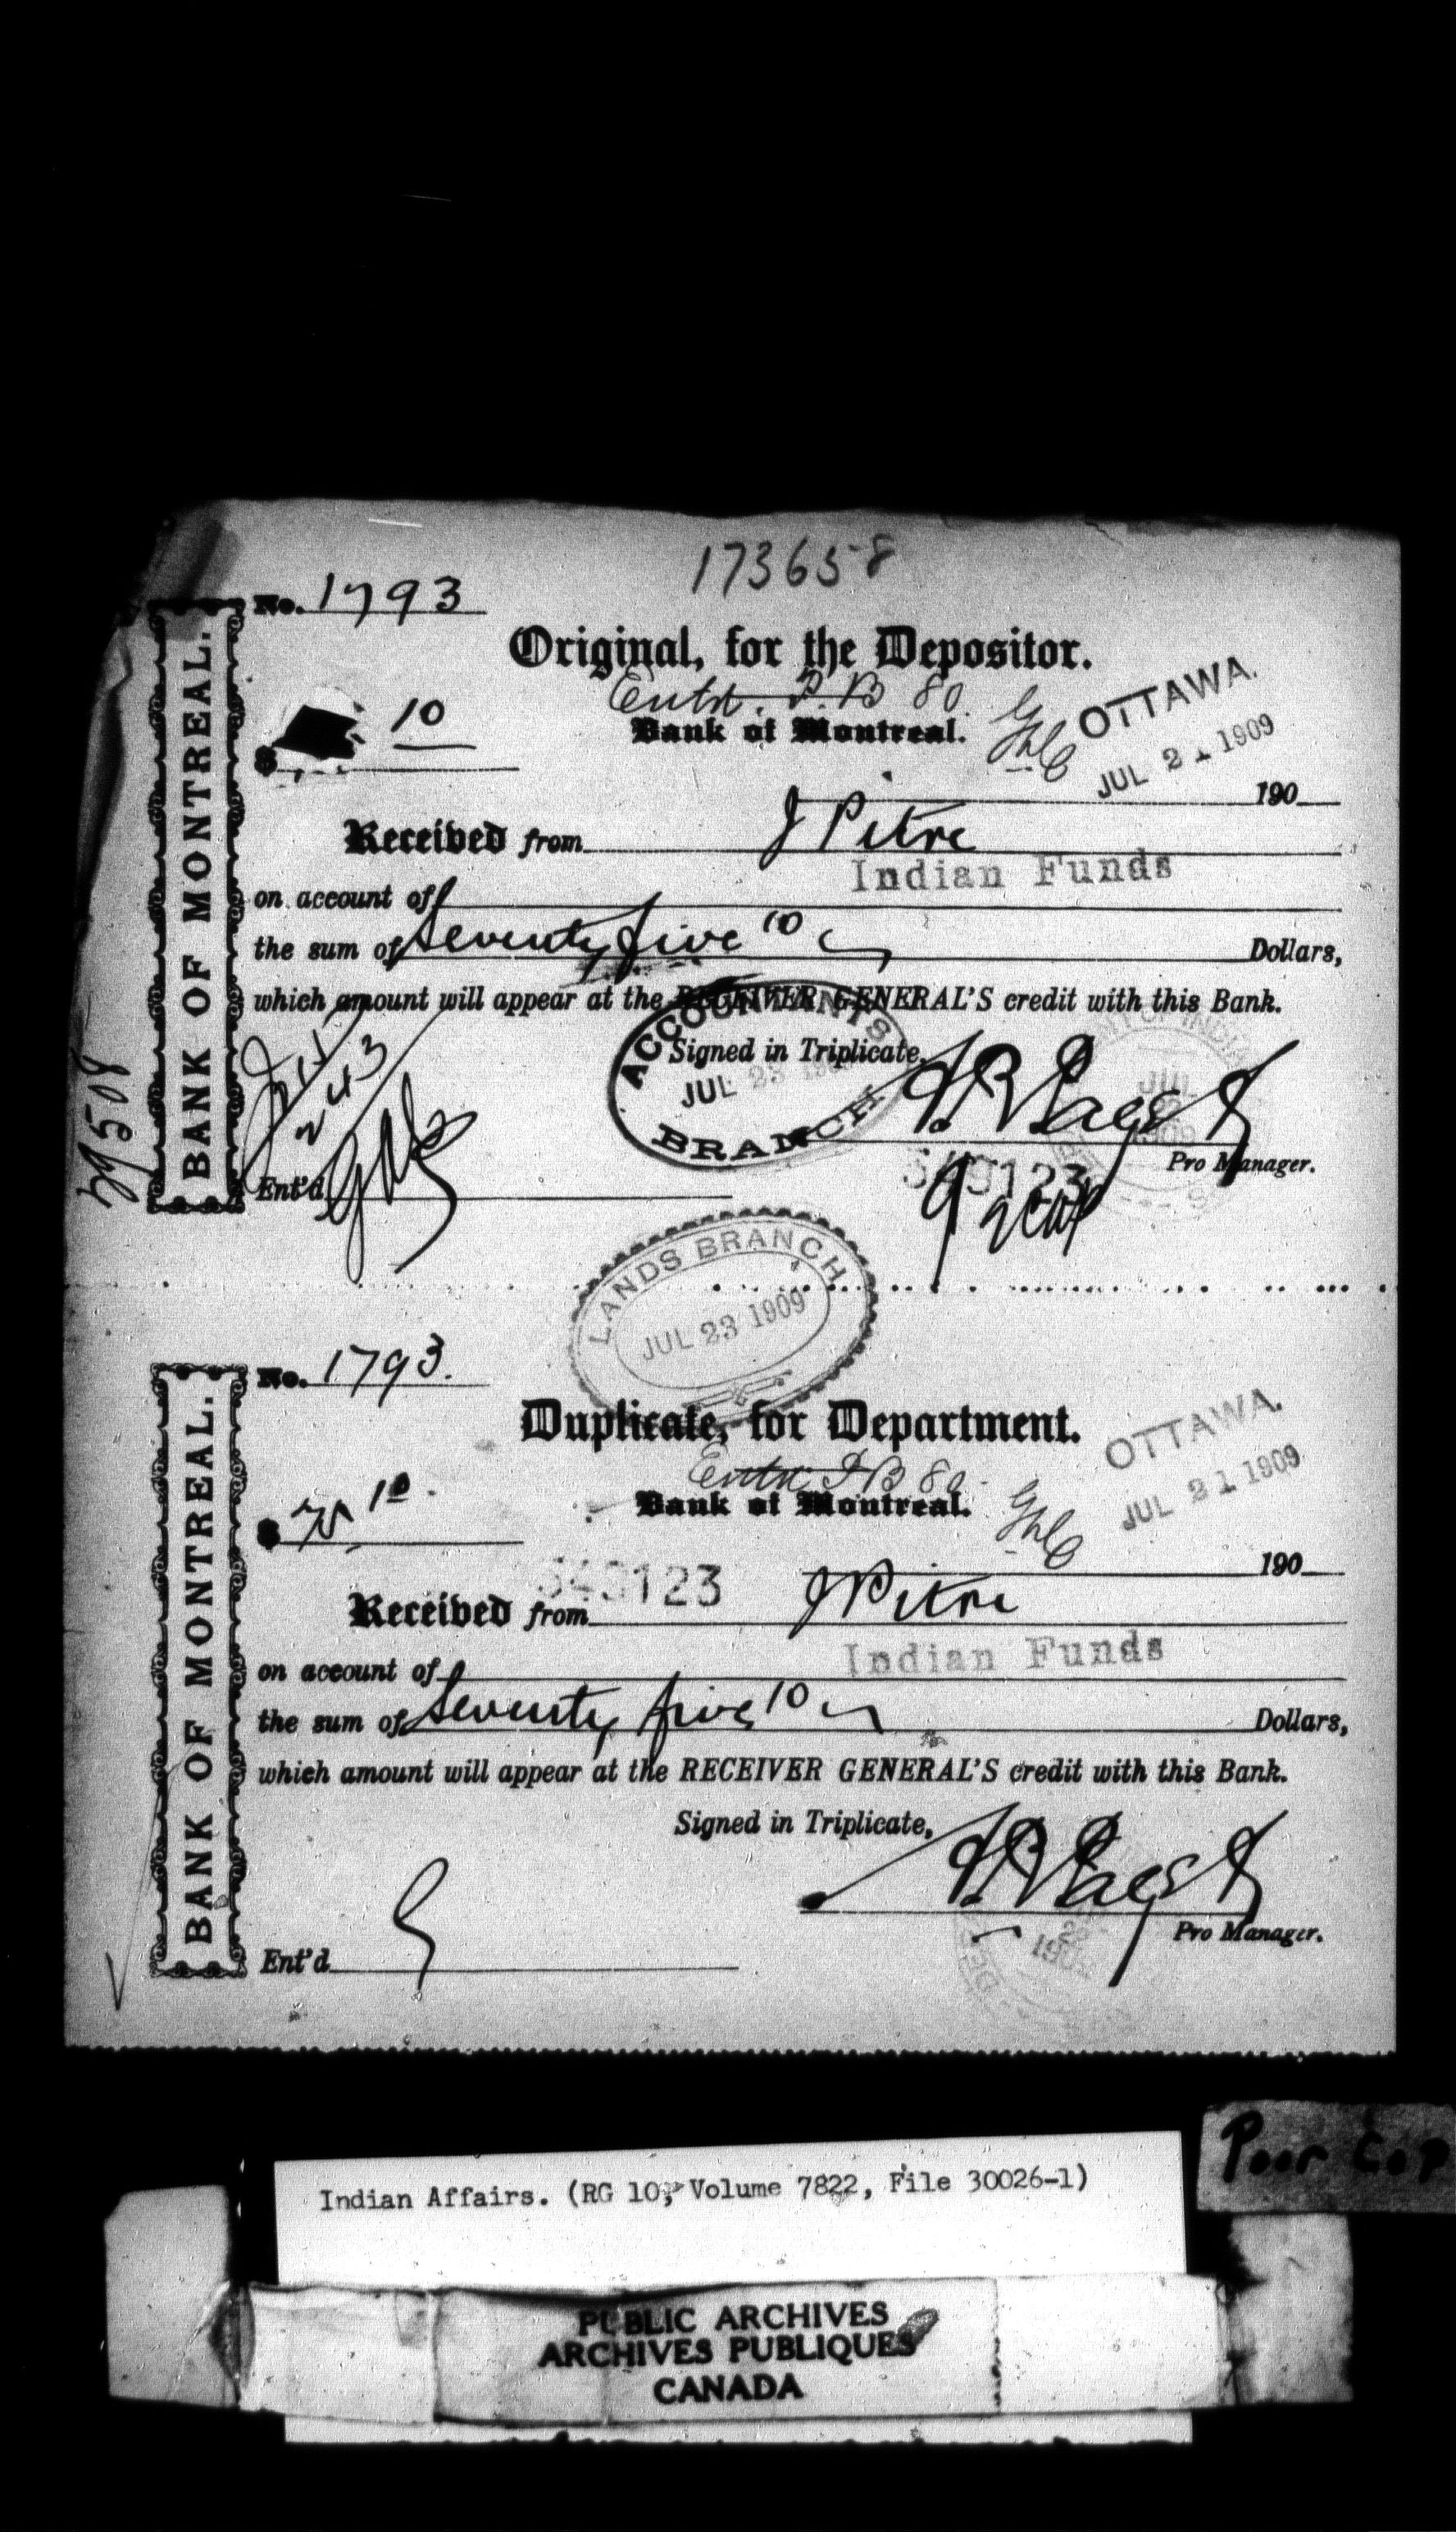 173658
No. 1793
Original, for the Depositor.
Entd. P. B 80.
Bank of Montreal.
OTTAWA.
JUL 21 1909
$ 10
190
Received from J Pitre
Indian Funds
on account of
the sum of Seventy five 10 Dollars,
which amount will appear at the RECEIVER GENERAL'S credit with this Bank.
Signed in Triplicate,
ACCOUNTANTS
JUL 23
BRANCH
Pro Manager.
349123
243
Ent'd
BANK OF MONTREAL.
LANDS BRANCH
JUL 23 1909
No. 1793.
Duplicate, for Department.
Bank of Montreal.
OTTAWA.
JUL 21 1909
$ 75 10.
190
349123
Received from J Pitre
Indian Funds
on account of
the sum of Seventy five 10 Dollars,
which amount will appear at the RECEIVER GENERAL'S credit with this Bank.
Signed in Triplicate,
Pro Manager.
Ent'd
BANK OF MONTREAL.
Poor Cop
Indian Affairs. (RG 10, Volume 7822, File 30026-1)
PUBLIC ARCHIVES
ARCHIVES PUBLIQUES
CANADA